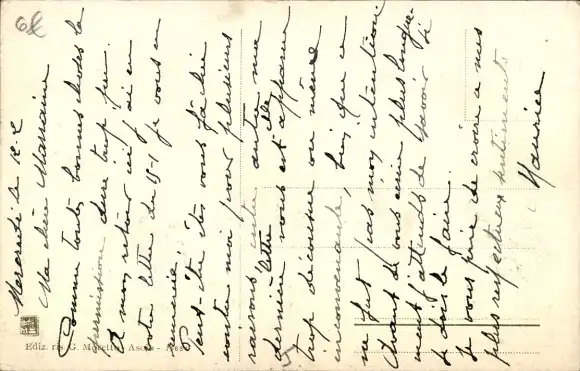 Mercredi le 12-2
Ma chère Marraine
Comme toutes bonnes choses la
permission dure trop peu.
A mon retour ici j'ai eu
votre lettre du 15-1 je vous en
remercie.
Peut-être êtes vous fâchée
contre moi pour plusieurs
raisons entre autre ma
dernière lettre vous est apparue
trop décousue ou même
inconvenante, bien que ce
ne fut pas mon intention.
Avant de vous écrire plus longue-
ment j'attends de savoir si
je dois le faire.
Je vous prie de croire à mes
plus respectueux sentiments
Maurice
Ediz. ris. G. Moretto - Asolo